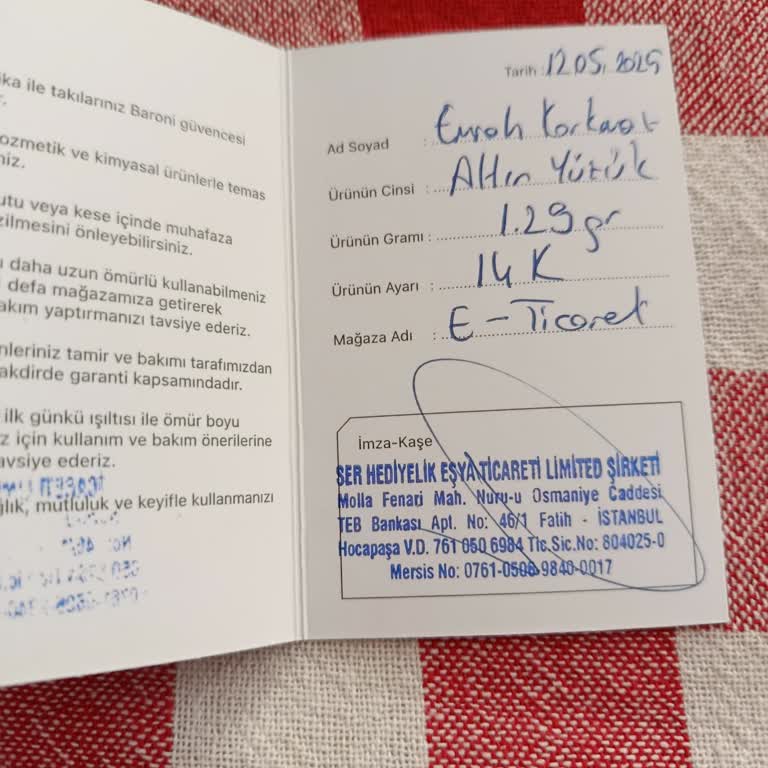 ika ile takılarınız Baroni güvencesi
r.
ozmetik ve kimyasal ürünlerle temas
niz.
utu veya kese içinde muhafaza
zilmesini önleyebilirsiniz.
daha uzun ömürlü kullanabilmeniz
defa mağazamıza getirerek
akım yaptırmanızı tavsiye ederiz.
nleriniz tamir ve bakımı tarafımızdan
akdirde garanti kapsamındadır.
ilk günkü ışıltısı ile ömür boyu
z için kullanım ve bakım önerilerine
avsiye ederiz.
ğlık, mutluluk ve keyifle kullanmanızı
Tarih : 12.05.2025
Ad Soyad : Emrah Korkmat
Ürünün Cinsi : Altın Yüzük
Ürünün Gramı : 1.29 gr
Ürünün Ayarı : 14 K
Mağaza Adı : E-Ticaret
İmza-Kaşe
SER HEDİYELİK EŞYA TİCARETİ LİMİTED ŞİRKETİ
Molla Fenari Mah. Nuru-u Osmaniye Caddesi
TEB Bankası Apt. No: 46/1 Fatih - İSTANBUL
Hocapaşa V.D. 761 050 6984 Tic.Sic.No: 804025-0
Mersis No: 0761-0506-9840-0017